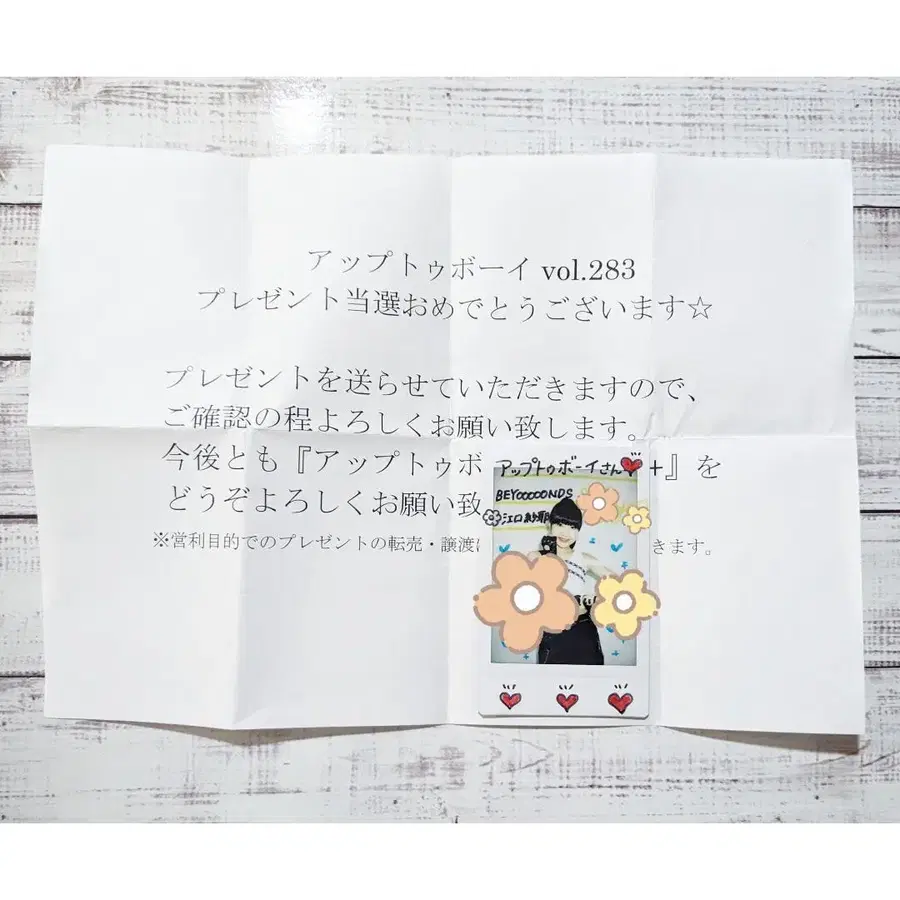 アップトゥボーイ vol.283
プレゼント当選おめでとうございます☆
プレゼントを送らせていただきますので、
ご確認の程よろしくお願い致します。
今後とも『アップトゥボ +』を
どうぞよろしくお願い致
※営利目的でのプレゼントの転売・譲渡 きます。
アップトゥボーイさん
BEYOOOOONDS
江口紗耶